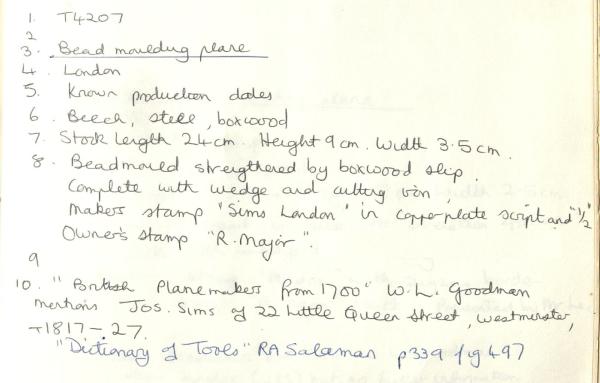 1. T4207
2
3. Bead moulding plane
4. London
5. Known production dates
6. Beech, steel, boxwood
7. Stock length 24cm Height 9cm. Width 3.5cm.
8. Beadmould streigthered by boxwood slip.
Complete with wedge and cutting iron,
Makers stamp "Sims London" in copperplate script and "1/2"
Owner's stamp "R. Major".
9
10. "British Planemakers from 1700" W.L. Goodman
mentions JOS. Sims of 22 Little Queen Street, Westminster,
-1817-27.
"Dictionary of Tools" RA Salaman p339 fig 497